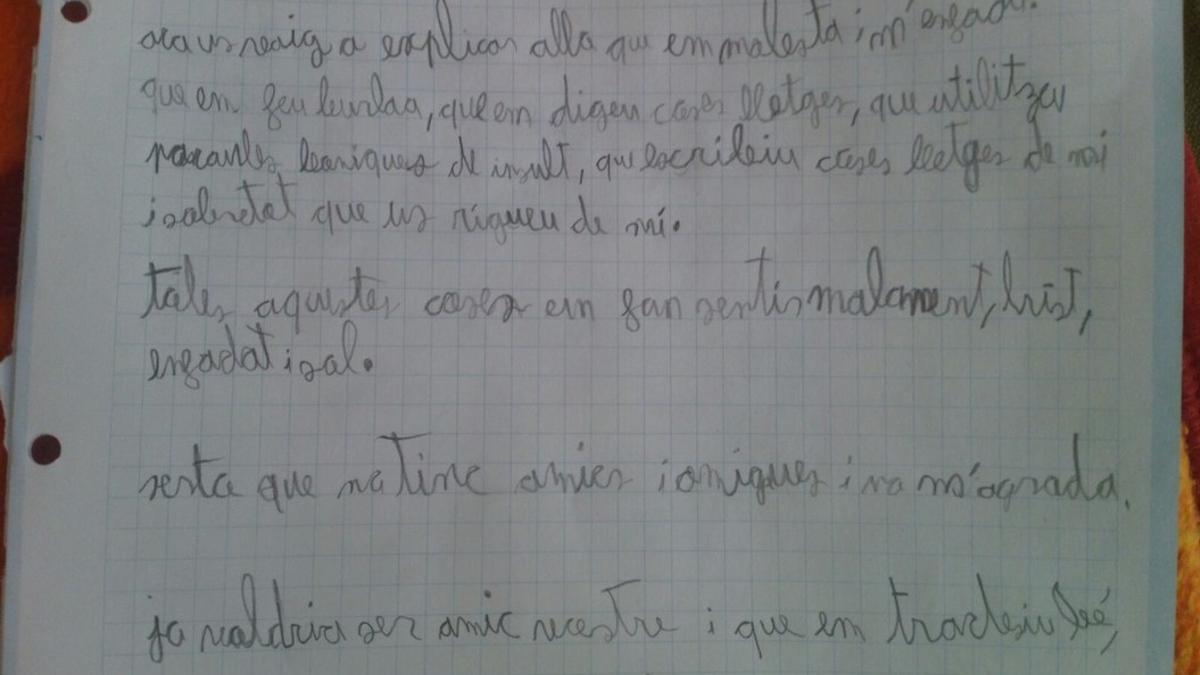 ara us vaig a explicar alló que em molesta i m'enfada.
que em feu burlaa, que em digeu coses lletges, que utilitzeu
paraules boniques de insult, que escribiu coses lletges de mi
i sobretot que us rigueu de mí.
totes aquestes coses em fan sentir malament, trist,
enfadat i sol.
sesta que no tinc amics i amigues i no m'agrada.
jo valdria ser amic vostre i que em tracteiu bé,